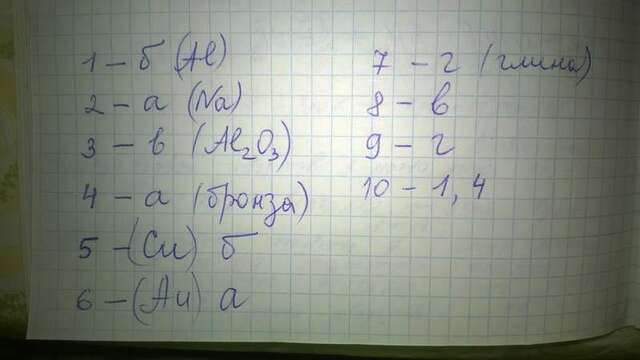 1 – б (Al)
2 – а (Na)
3 – в (Al₂O₃)
4 – а (бронза)
5 – (Cu) б
6 – (Au) а
7 – г (глина)
8 – в
9 – г
10 – 1, 4